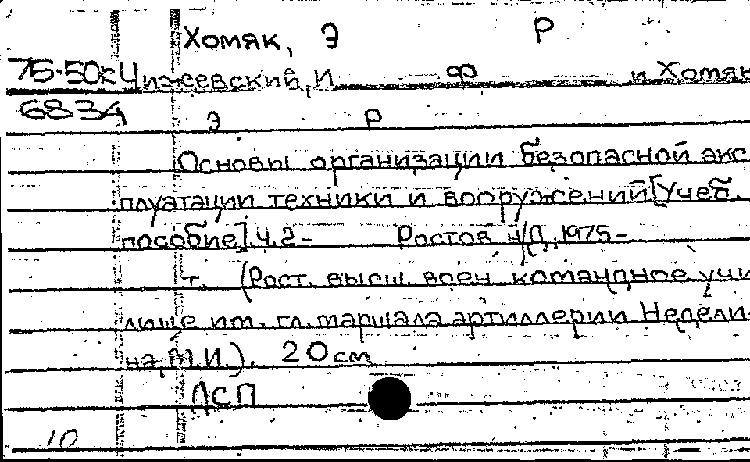 Хомяк, Э Р
75-50к Чижевский, И Ф и Хомяк
6834 Э Р
Основы организации безопасной экс
плуатации техники и вооружений [Учеб.
пособие]. Ч.2- Ростов н/Д, 1975-
т. (Рост. высш. воен командное учи
лище им. гл. маршала артиллерии Недели-
на, М.И.). 20 см
ЛСП
10